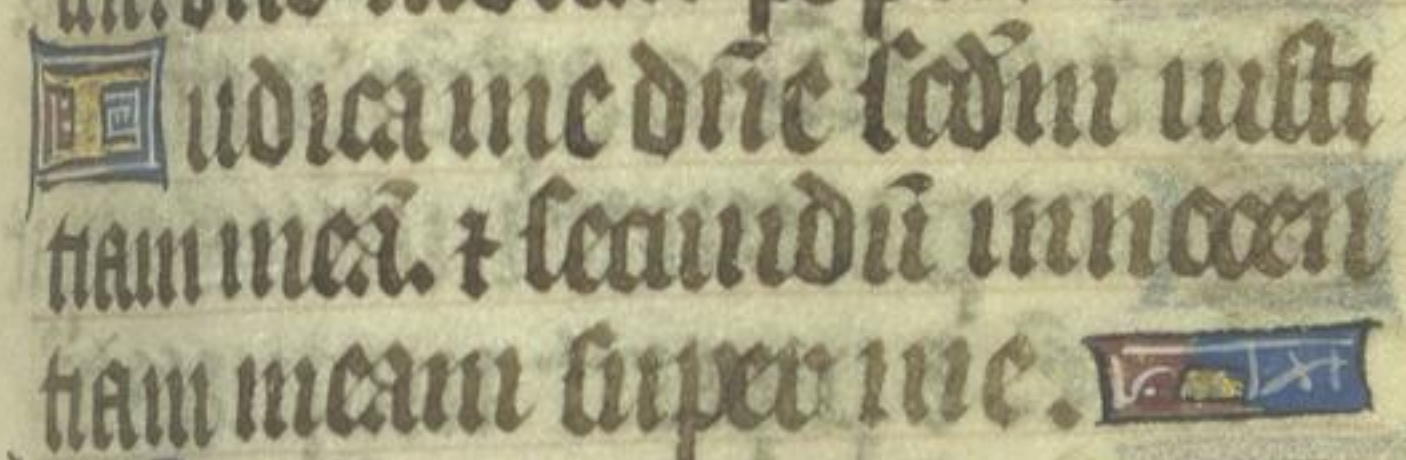 Iudica me dñe scďm iusti
tiam meā. ⁊ secundū innocen
tiam meam super me.